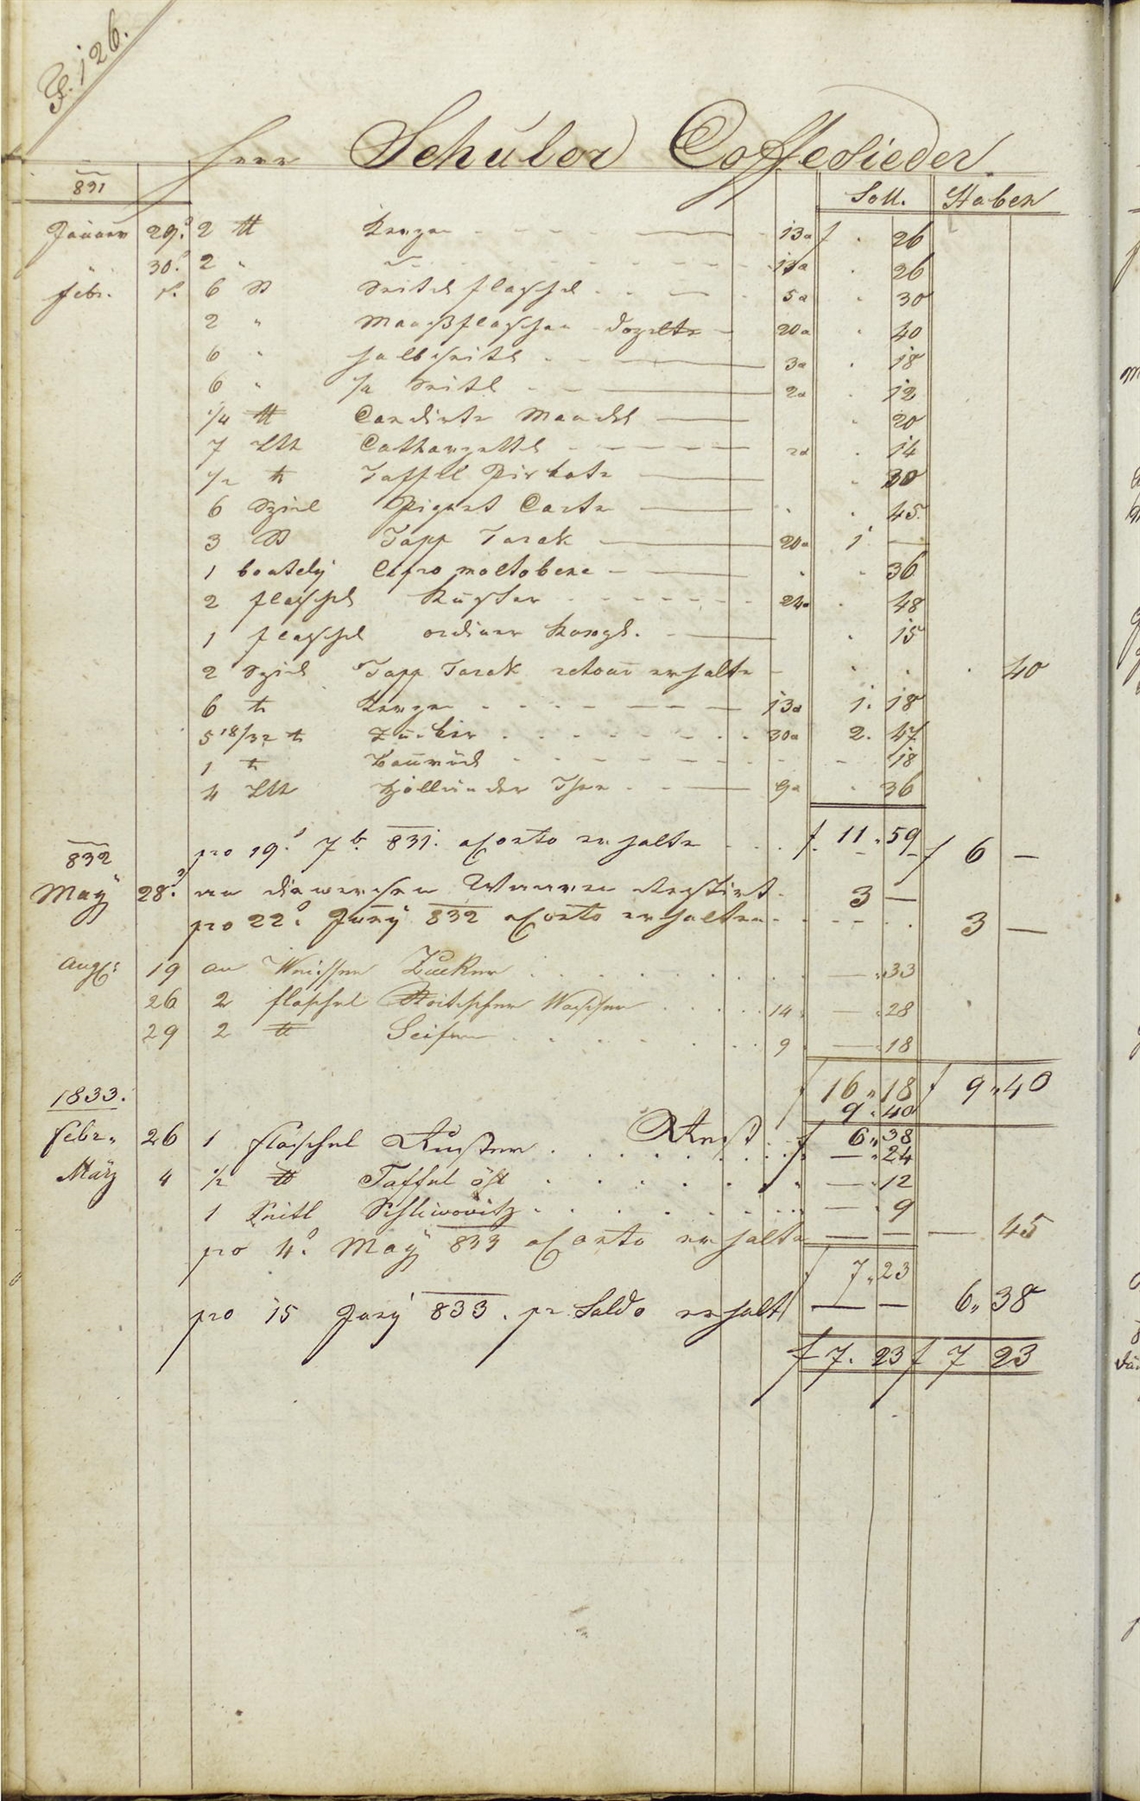 F. 126.
Herr Schuler Coffesieder.
831 Soll. Haben
Januar 29. 2 ℔ Kerzen 13a f . 26
30. 2 " 13a . 26
Febr. 1. 6 St Seitel flaschel 5a . 30
2 " Maasflaschen 20a . 40
6 " halbseitel 3a . 18
6 " Seitl 2a . 12
1/4 ℔ Candirte Mandel . 20
7 Lth 2a . 14
1/2 ℔ Taffel 30
6 Spiel Piquet Carte . 45
3 St Tapp Tarok 20a 1 —
1 36
2 flaschel Ruster 24a . 48
1 flaschel ordinär . 15
2 Spiel Tapp Tarok retour erhalte . 40
6 ℔ Kerzen 13a 1. 18
5 18/32 ℔ Zucker 30a 2. 47
1 ℔ 18
4 Lth Hollunder Thee 9a . 36
f. 11. 59
pro 19. 7b. 831. aConto erhalte f 6 —
832
May 28. an diversen Waaren 3 —
pro 22. Juny 832 aConto erhalten 3 —
Aug: 19 an Weissen Zucker — . 33
26 2 flaschel Wasser 14 — . 28
29 2 ℔ Seifen 9 — . 18
f 16 " 18 f 9 " 40
9 . 40
1833.
Rest f 6 " 38
Febr. 26 1 flaschel Ruster — " 24
März 4 1/2 ℔ Taffel öhl — . 12
1 Seitl Schliwowitz — . 9
pro 4. May 833 aConto erhalte — — — 45
f 7 " 23
pro 15 Juny 833 . pr Saldo erhalt — — 6 " 38
f 7. 23 f 7 23